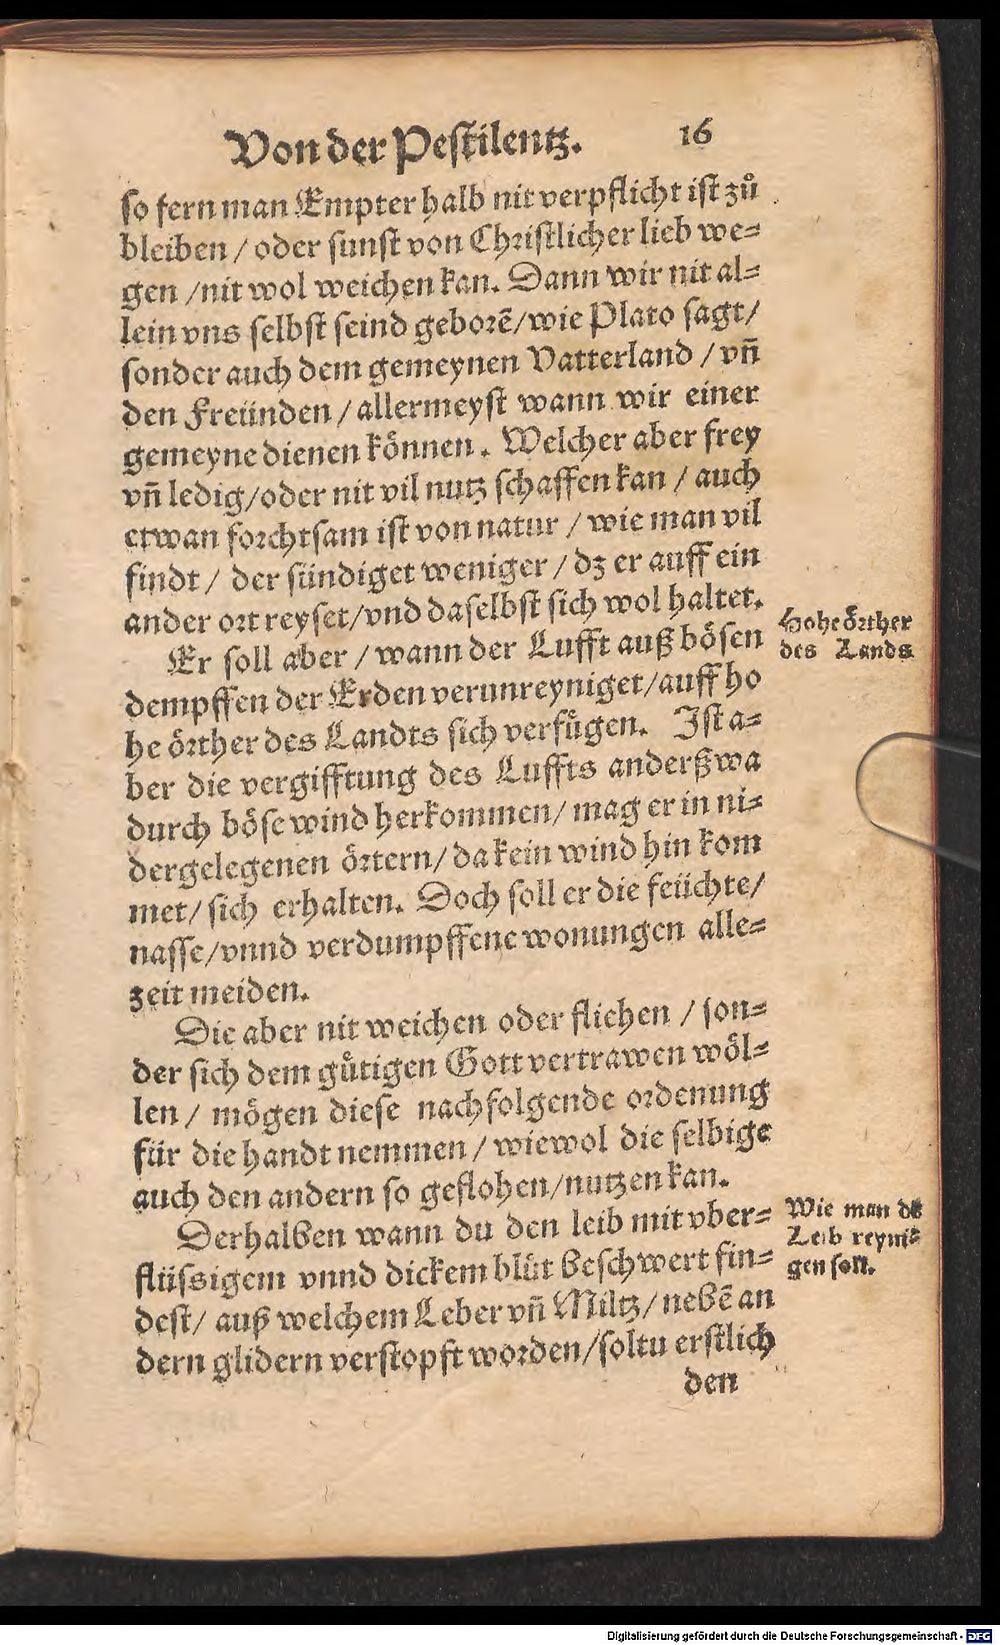 Von der Pestilentz. 16
so fern man Empter halb nit verpflicht ist zů
bleiben / oder sunst von Christlicher lieb we=
gen / nit wol weichen kan. Dann wir nit al=
lein vns selbst seind geborẽ / wie Plato sagt /
sonder auch dem gemeynen Vatterland / vñ
den Freünden / allermeyst wann wir einer
gemeyne dienen können. Welcher aber frey
vñ ledig / oder nit vil nutz schaffen kan / auch
etwan forchtsam ist von natur / wie man vil
findt / der sündiget weniger / dz er auff ein
ander ort reyset / vnd daselbst sich wol haltet.
Er soll aber / wann der Lufft auß bösen
dempffen der Erden verunreyniget / auff ho
he örther des Landts sich verfügen. Ist a=
ber die vergifftung des Luffts anderßwa
durch böse wind herkommen / mag er in ni=
dergelegenen örtern / da kein wind hin kom
met / sich erhalten. Doch soll er die feüchte /
nasse / vnnd verdumpffene wonungen alle=
zeit meiden.
Die aber nit weichen oder fliehen / son=
der sich dem gůtigen Gott vertrawen wöl=
len / mögen diese nachfolgende ordenung
für die handt nemmen / wiewol die selbige
auch den andern so geflohen / nutzen kan.
Derhalben wann du den leib mit vber=
flüssigem vnnd dickem blůt beschwert fin=
dest / auß welchem Leber vñ Miltz / nebẽ an
dern glidern verstopft worden / soltu erstlich
den
Hohe örther
des Lands
Wie man dẽ
Leib reyni=
gen soll.
Digitalisierung gefördert durch die Deutsche Forschungsgemeinschaft - DFG